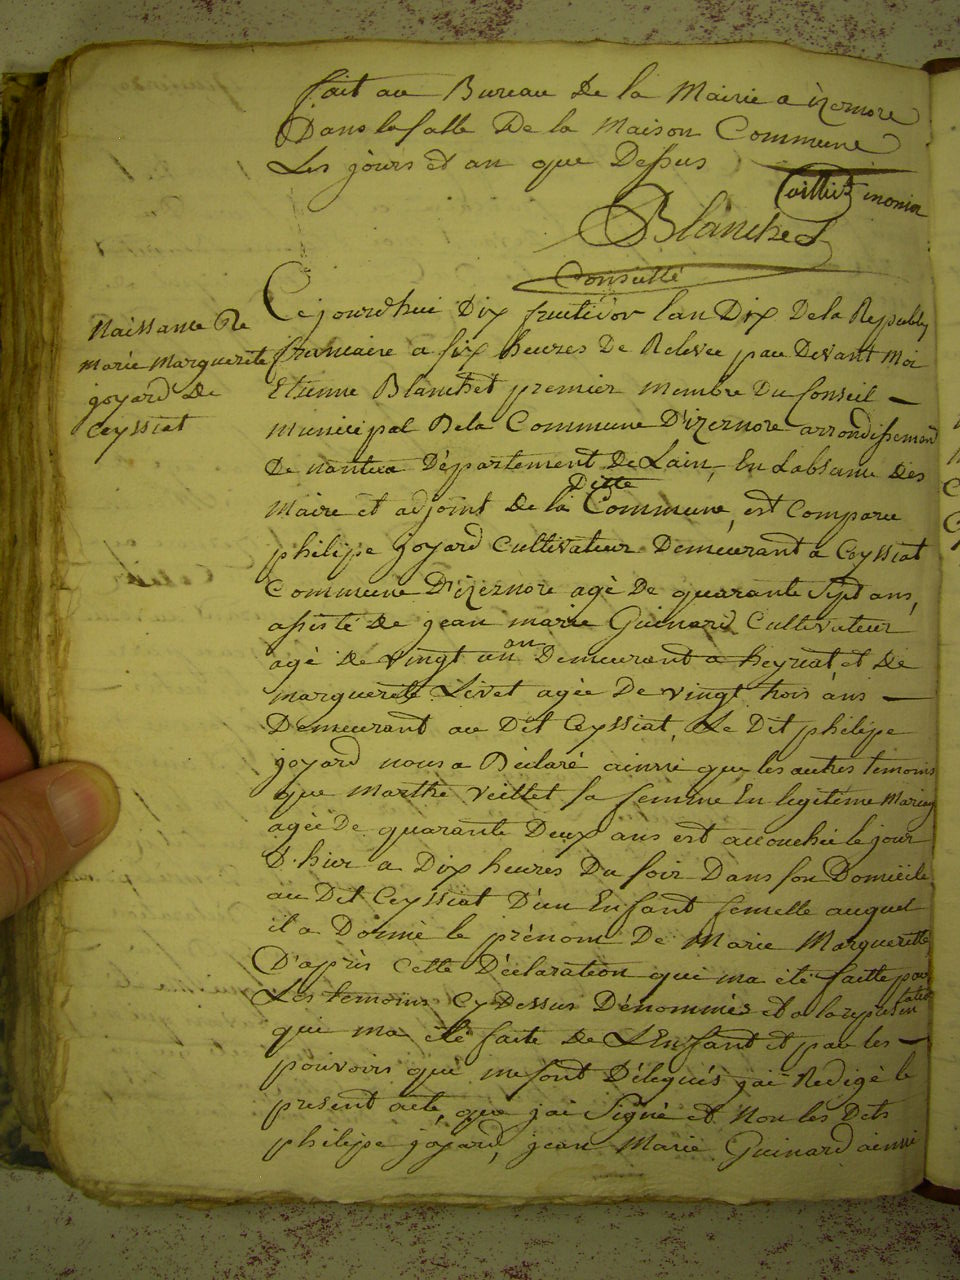 fait au Bureau De la Mairie a izernore
Dans la salle De la Maison Commune
Les jours et an que Dessus
Blanchet
Conseillé
Naissance De
Marie Marguerite
goyard De
Ceyssiat
Ce jourd'hui Dix fructidor lan Dix De la Republq
francaise a six heures De Relevée par Devant Moi
Etienne Blanchet premier membre Du Conseil —
municipal De la Commune D'izernore arrondissement
De nantua Département De Lain, En Labsance Des
Ditte
Maire et adjoint De la Commune, est Comparu
philipe goyard Cultivateur Demeurant a Ceyssiat
Commune D'izernore agé De quarante Sept ans,
assisté De jean marie Guinard Cultivateur
an
agé De vingt un Demeurant a heyriat et De
marguerite Livet agée De vingt trois ans —
Demeurant au Dit Ceyssiat, Le Dit philipe
goyard nous a Déclaré ainsi que les autres temoins
que Marthe veillet sa femme En legitime Mariag
agée De quarante Deux ans est accouchée le jour
D'hier a Dix heures Du soir Dans son Domicile
au Dit Ceyssiat D'un Enfant femelle auquel
il a Donné le prénom De Marie Marguerite,
D'après Cette Déclaration qui ma été faitte par
Les temoins Cy Dessus Dénommés et a la représen
tation
qui ma été faite De L'Enfant et par les —
pouvoirs qui me sont Délegués jai Redigé le
present acte, que jai Signé et Non les Dits
philipe goyard, jean Marie Guinard ainsi